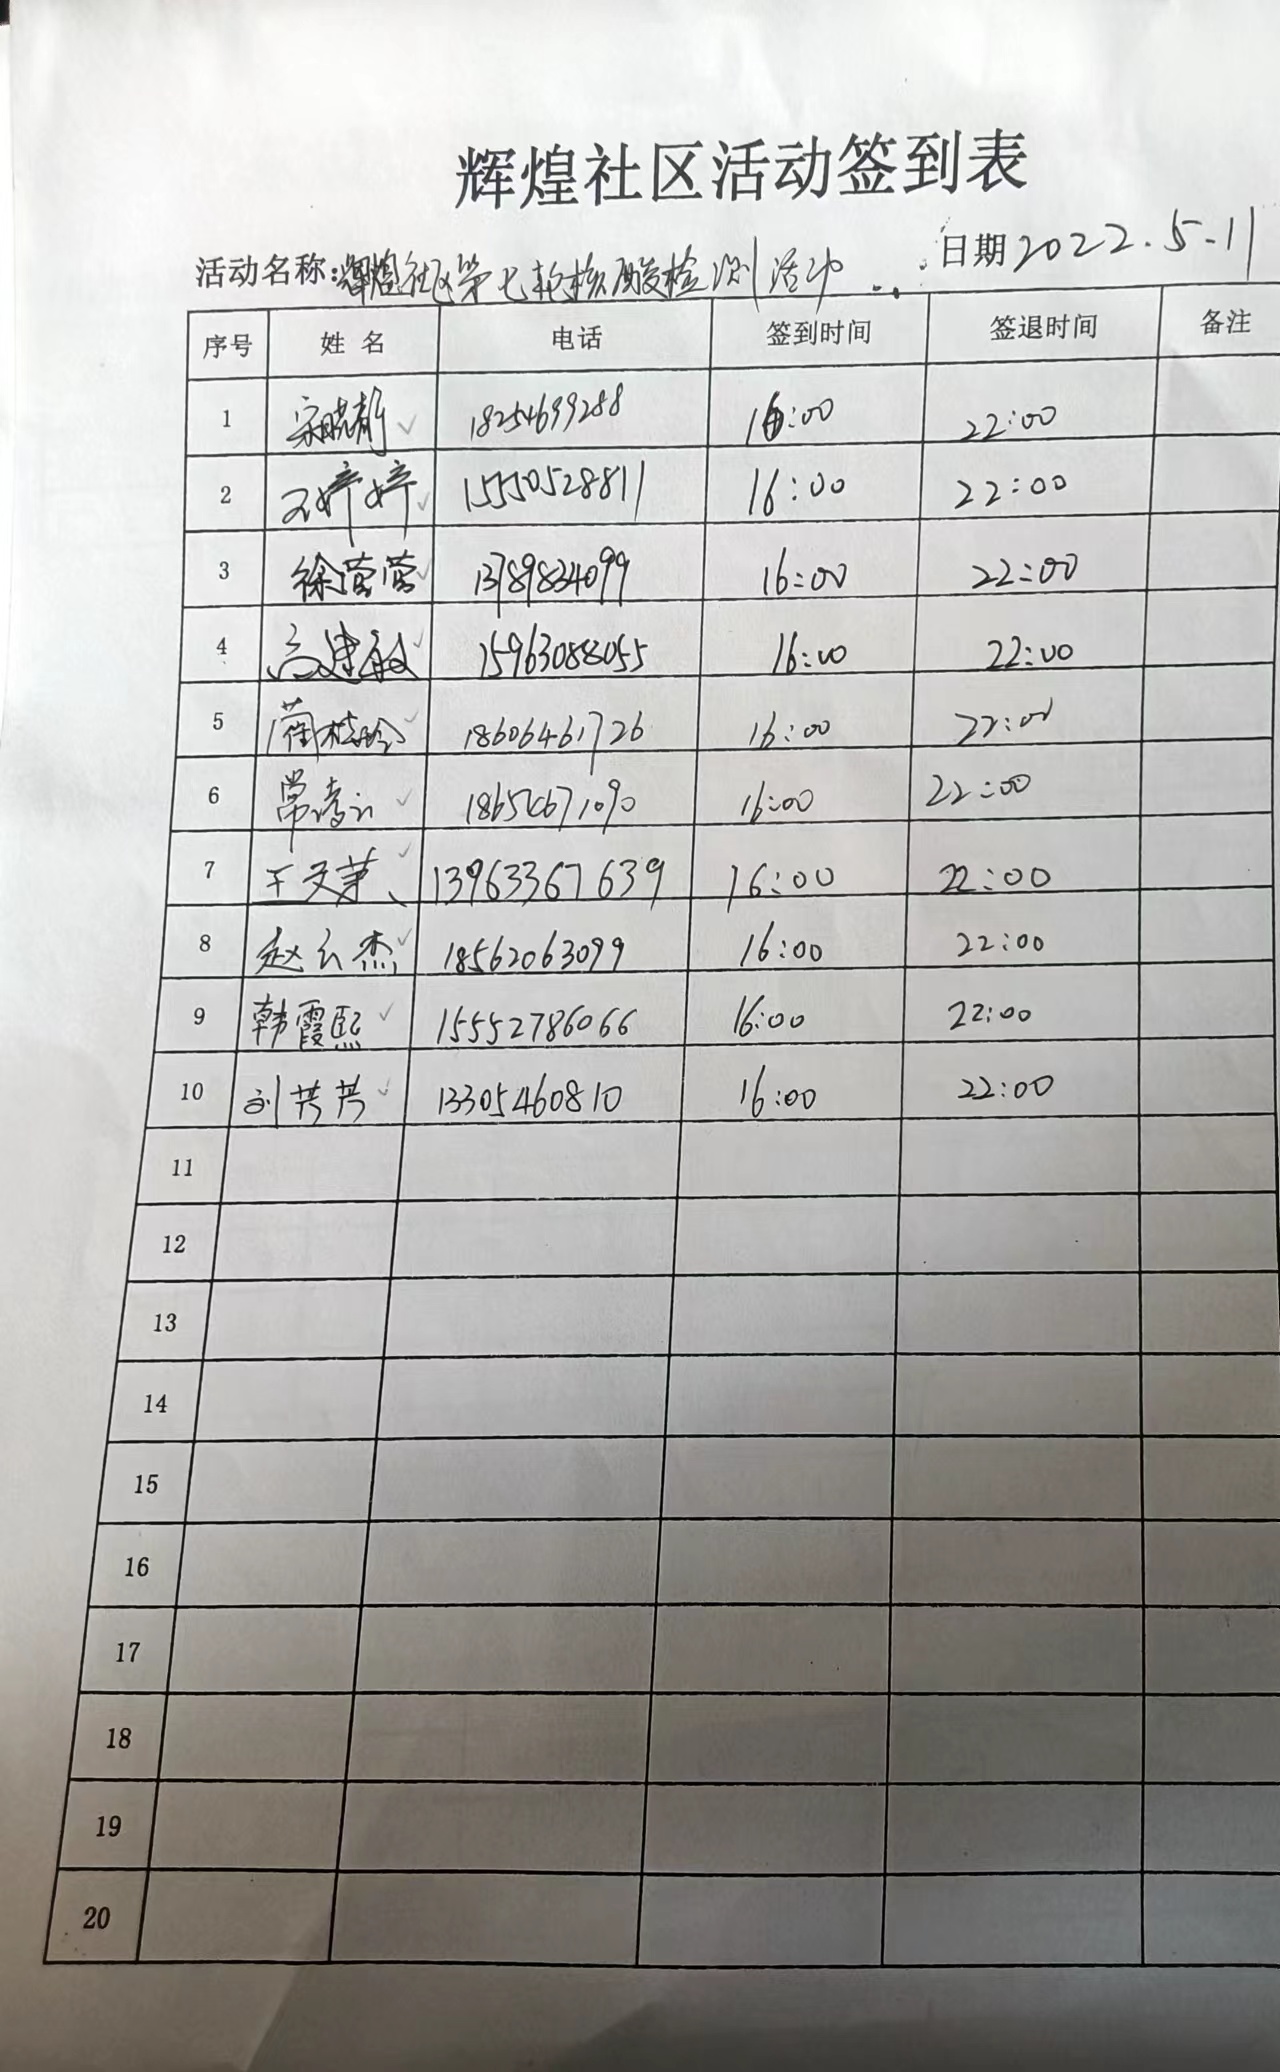 辉煌社区活动签到表
活动名称:辉煌社区第七轮核酸检测活动 日期2022.5-11
序号 姓名 电话 签到时间 签退时间 备注
1 宋晓静 18254699288 16:00 22:00
2 王婷婷 15550528811 16:00 22:00
3 徐莹莹 13789834099 16:00 22:00
4 高建敏 15963088055 16:00 22:00
5 18606461726 16:00 22:00
6 16:00 22:00
7 王文 13963367639 16:00 22:00
8 赵云杰 18562063099 16:00 22:00
9 韩霞熙 15552786066 16:00 22:00
10 刘芳芳 13305460810 16:00 22:00
11
12
13
14
15
16
17
18
19
20